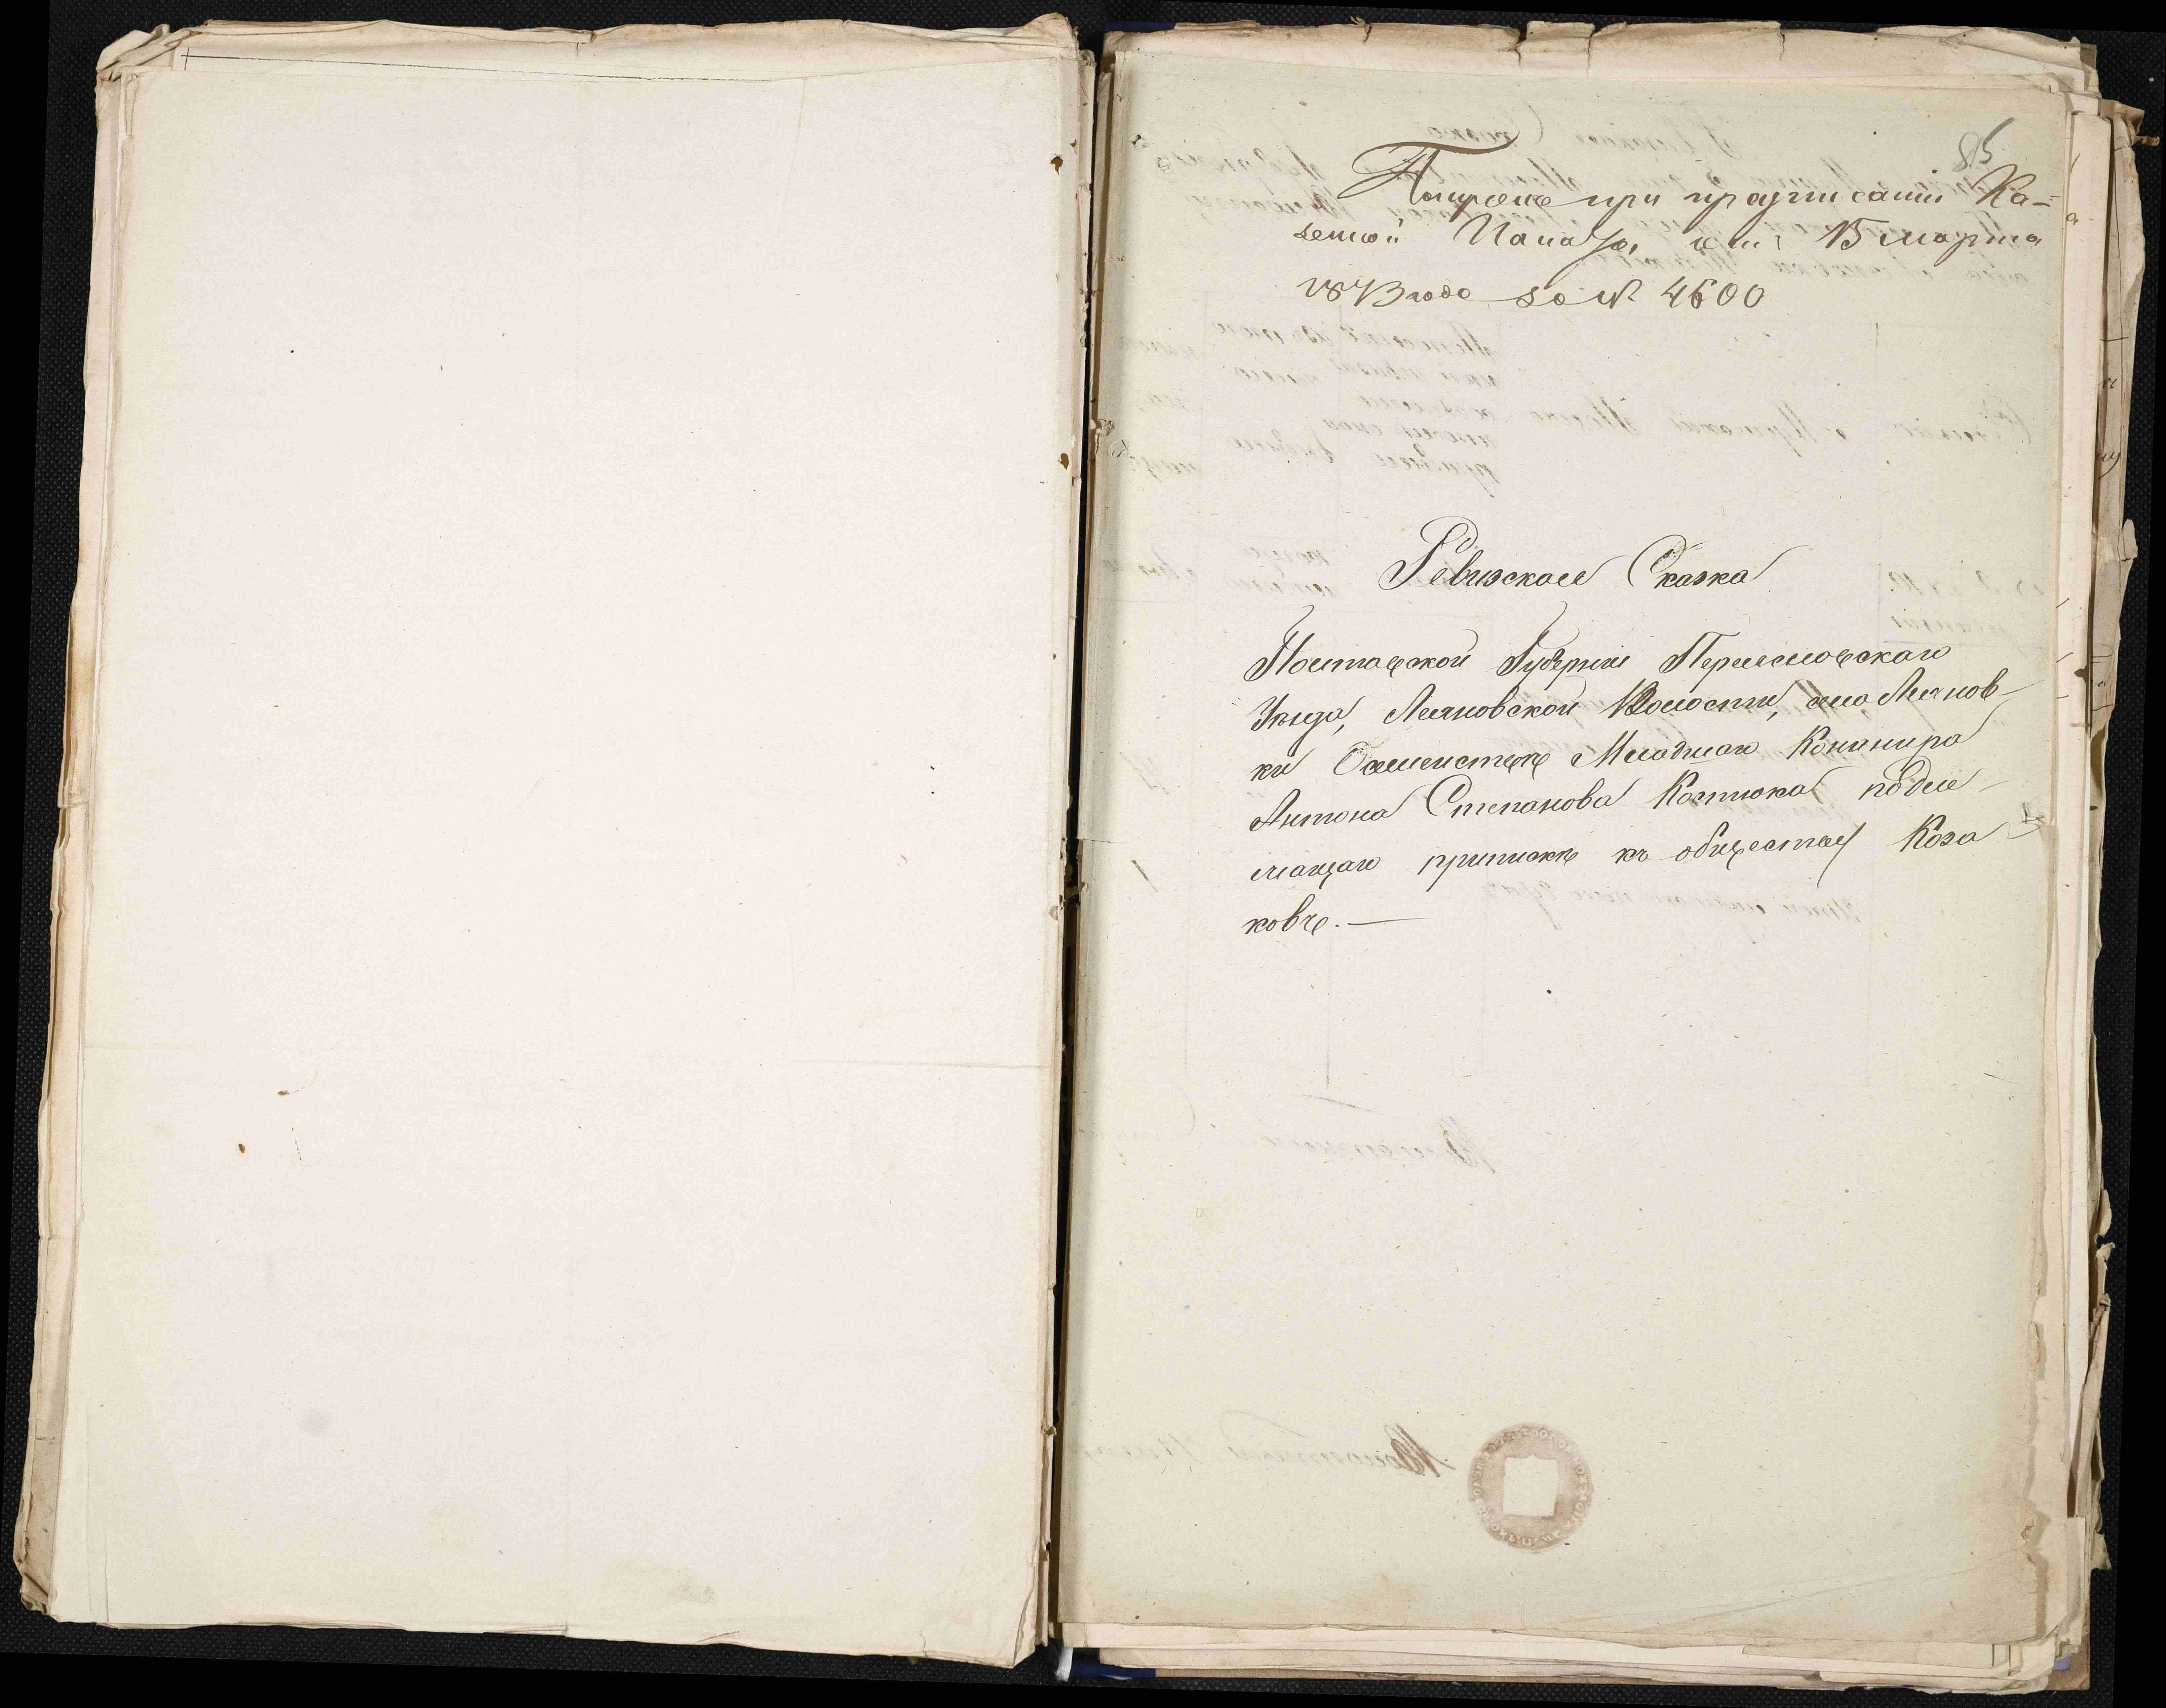 85
Получено при предписаніи Ка=
зенной Палаты, отъ 15 марта
1873 года за № 4600
Ревизская Сказка
Полтавской Губерніи Переяславскаго
Уѣзда, Лемяновской Волости, села
ки Семейство Младшаго Конанира
Антона Степанова Костюка подле-
жащаго припискѣ къ обществу Коза
ковъ. —